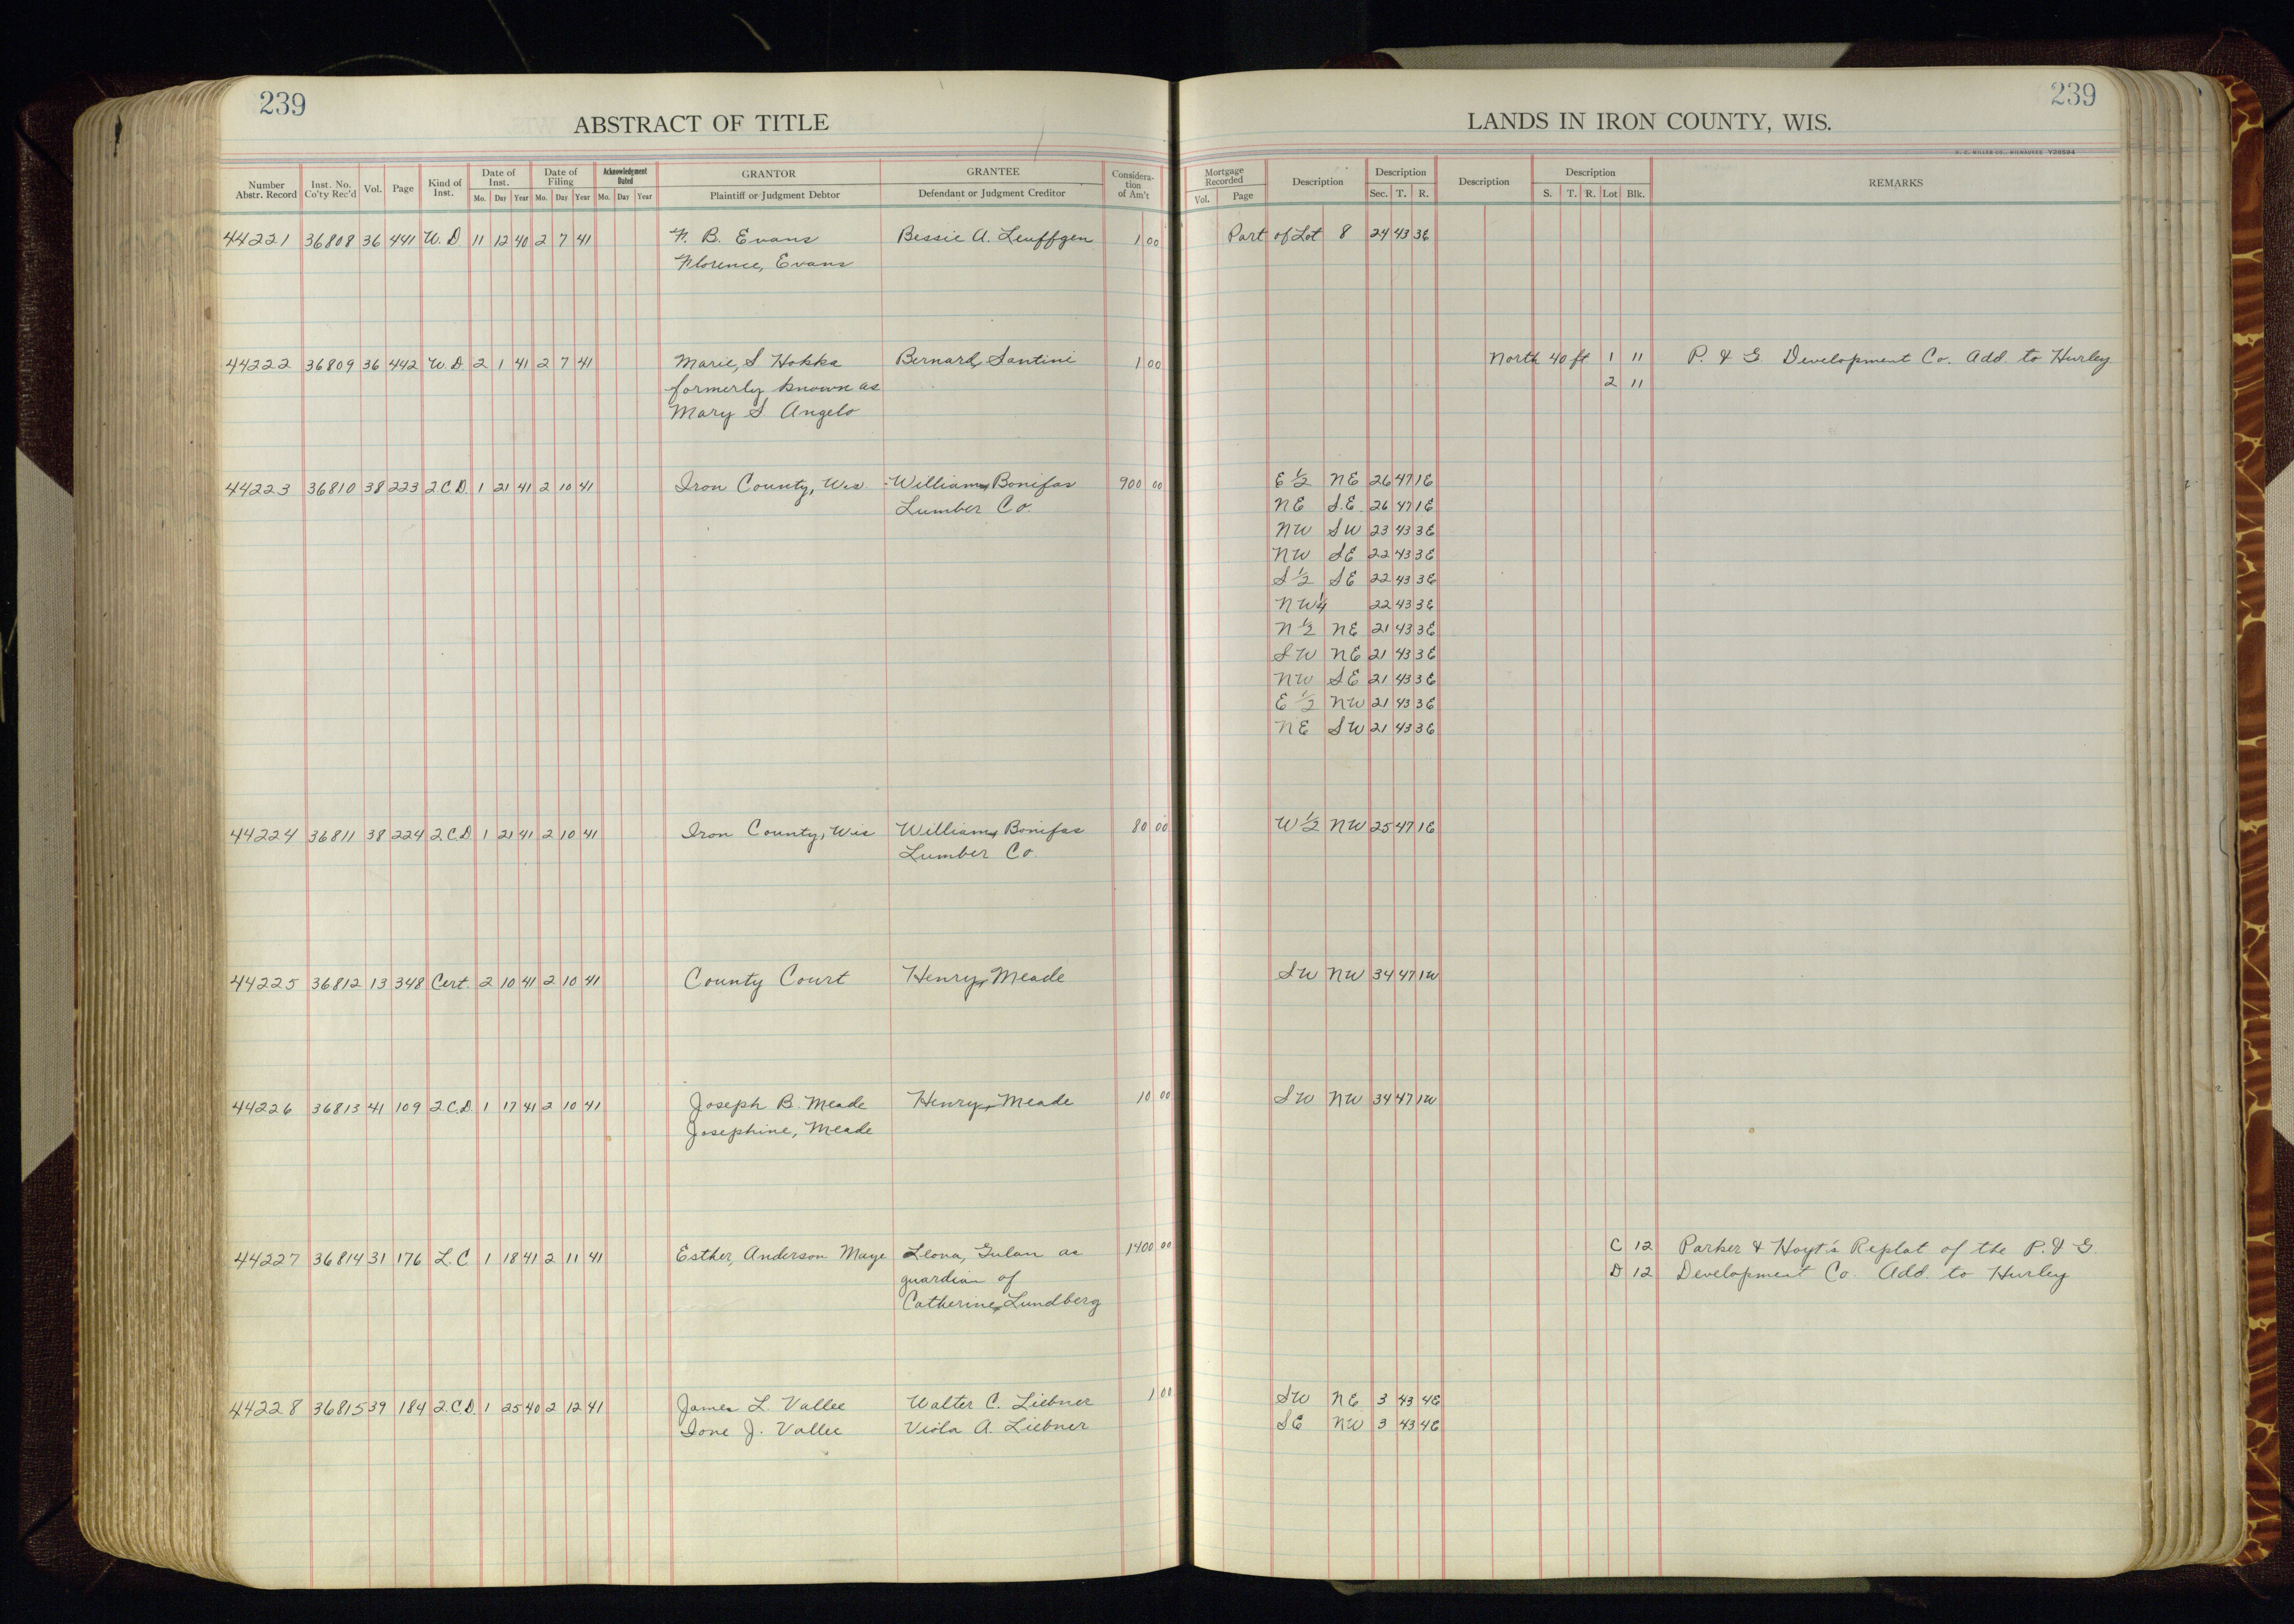 239
ABSTRACT OF TITLE
Number Abstr. Record | Inst. No. Co'ty Rec'd | Vol. | Page | Kind of Inst. | Date of Inst. Mo. Day Year | Date of Filing Mo. Day Year | Acknowledgment Dated Mo. Day Year | GRANTOR Plaintiff or Judgment Debtor | GRANTEE Defendant or Judgment Creditor | Consideration of Am't
44221 36808 36 441 W.D. 11 12 40 2 7 41 F. B. Evans Bessie A. Leuffgen 1 00
Florence, Evans
44222 36809 36 442 W.D. 2 1 41 2 7 41 Marie, S Hokka Bernard, Santini 1 00
formerly known as
Mary S. Angelo
44223 36810 38 223 2.C.D. 1 21 41 2 10 41 Iron County, Wis William, Bonifas 900 00
Lumber Co.
44224 36811 38 224 2.C.D 1 21 41 2 10 41 Iron County, Wis William, Bonifas 80 00
Lumber Co.
44225 36812 13 348 Cert. 2 10 41 2 10 41 County Court Henry, Meade
44226 36813 41 109 2.C.D. 1 17 41 2 10 41 Joseph B. Meade Henry, Meade 10 00
Josephine, Meade
44227 36814 31 176 L.C 1 18 41 2 11 41 Esther, Anderson Maye Leona, Gulan as 1400 00
guardian of
Catherine, Lundberg
44228 36815 39 184 2.C.D. 1 25 40 2 12 41 James L. Vallee Walter C. Liebner 1 00
Ione J. Vallee Viola A. Liebner
239
LANDS IN IRON COUNTY, WIS.
H. C. MILLER CO., MILWAUKEE Y38594
Mortgage Recorded Vol. Page | Description | Description Sec. T. R. | Description | Description S. T. R. Lot Blk. | REMARKS
Part of Lot 8 24 43 3E
North 40 ft 1 11 P. & G. Development Co. Add to Hurley
2 11
E ½ NE 26 47 1E
NE S.E. 26 47 1E
NW SW 23 43 3E
NW SE 22 43 3E
S ½ SE 22 43 3E
NW ¼ 22 43 3E
N ½ NE 21 43 3E
SW NE 21 43 3E
NW SE 21 43 3E
E ½ NW 21 43 3E
NE SW 21 43 3E
W ½ NW 25 47 1E
SW NW 34 47 1W
SW NW 34 47 1W
C 12 Parker & Hoyt's Replat of the P. & G.
D 12 Development Co. Add. to Hurley
SW NE 3 43 4E
SE NW 3 43 4E